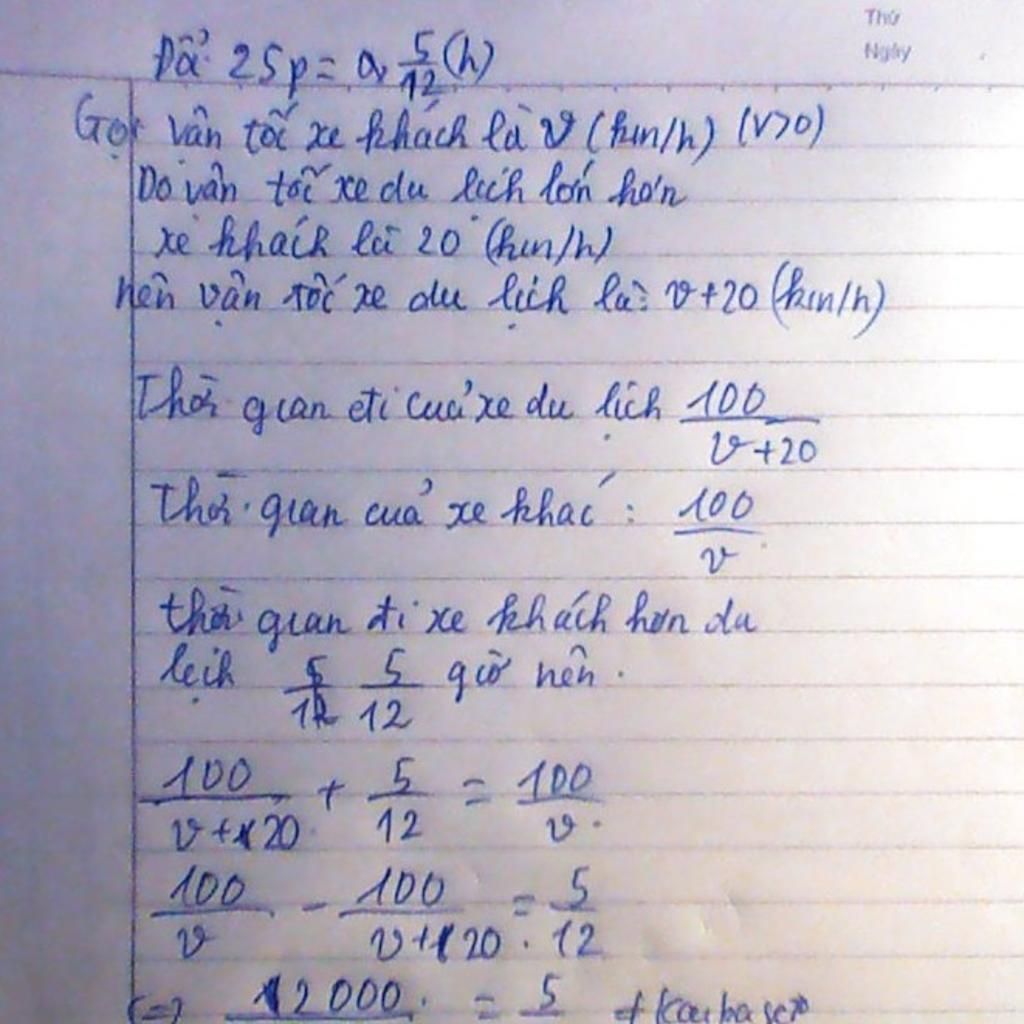 Thứ
Ngày
Đổi 25p = 5/12 (h)
Gọi vận tốc xe khách là v (km/h) (v>0)
Do vân tốc xe du lịch lớn hơn
xe khách là 20 (km/h)
nên vận tốc xe du lịch là: v+20 (km/h)
Thời gian đi của xe du lịch 100/(v+20)
Thời gian của xe khác : 100/v
thời gian đi xe khách hơn du
lịch 5/12 5/12 giờ nên.
100/(v+20) + 5/12 = 100/v
100/v - 100/(v+20) = 5/12
(=) 2000 = 5